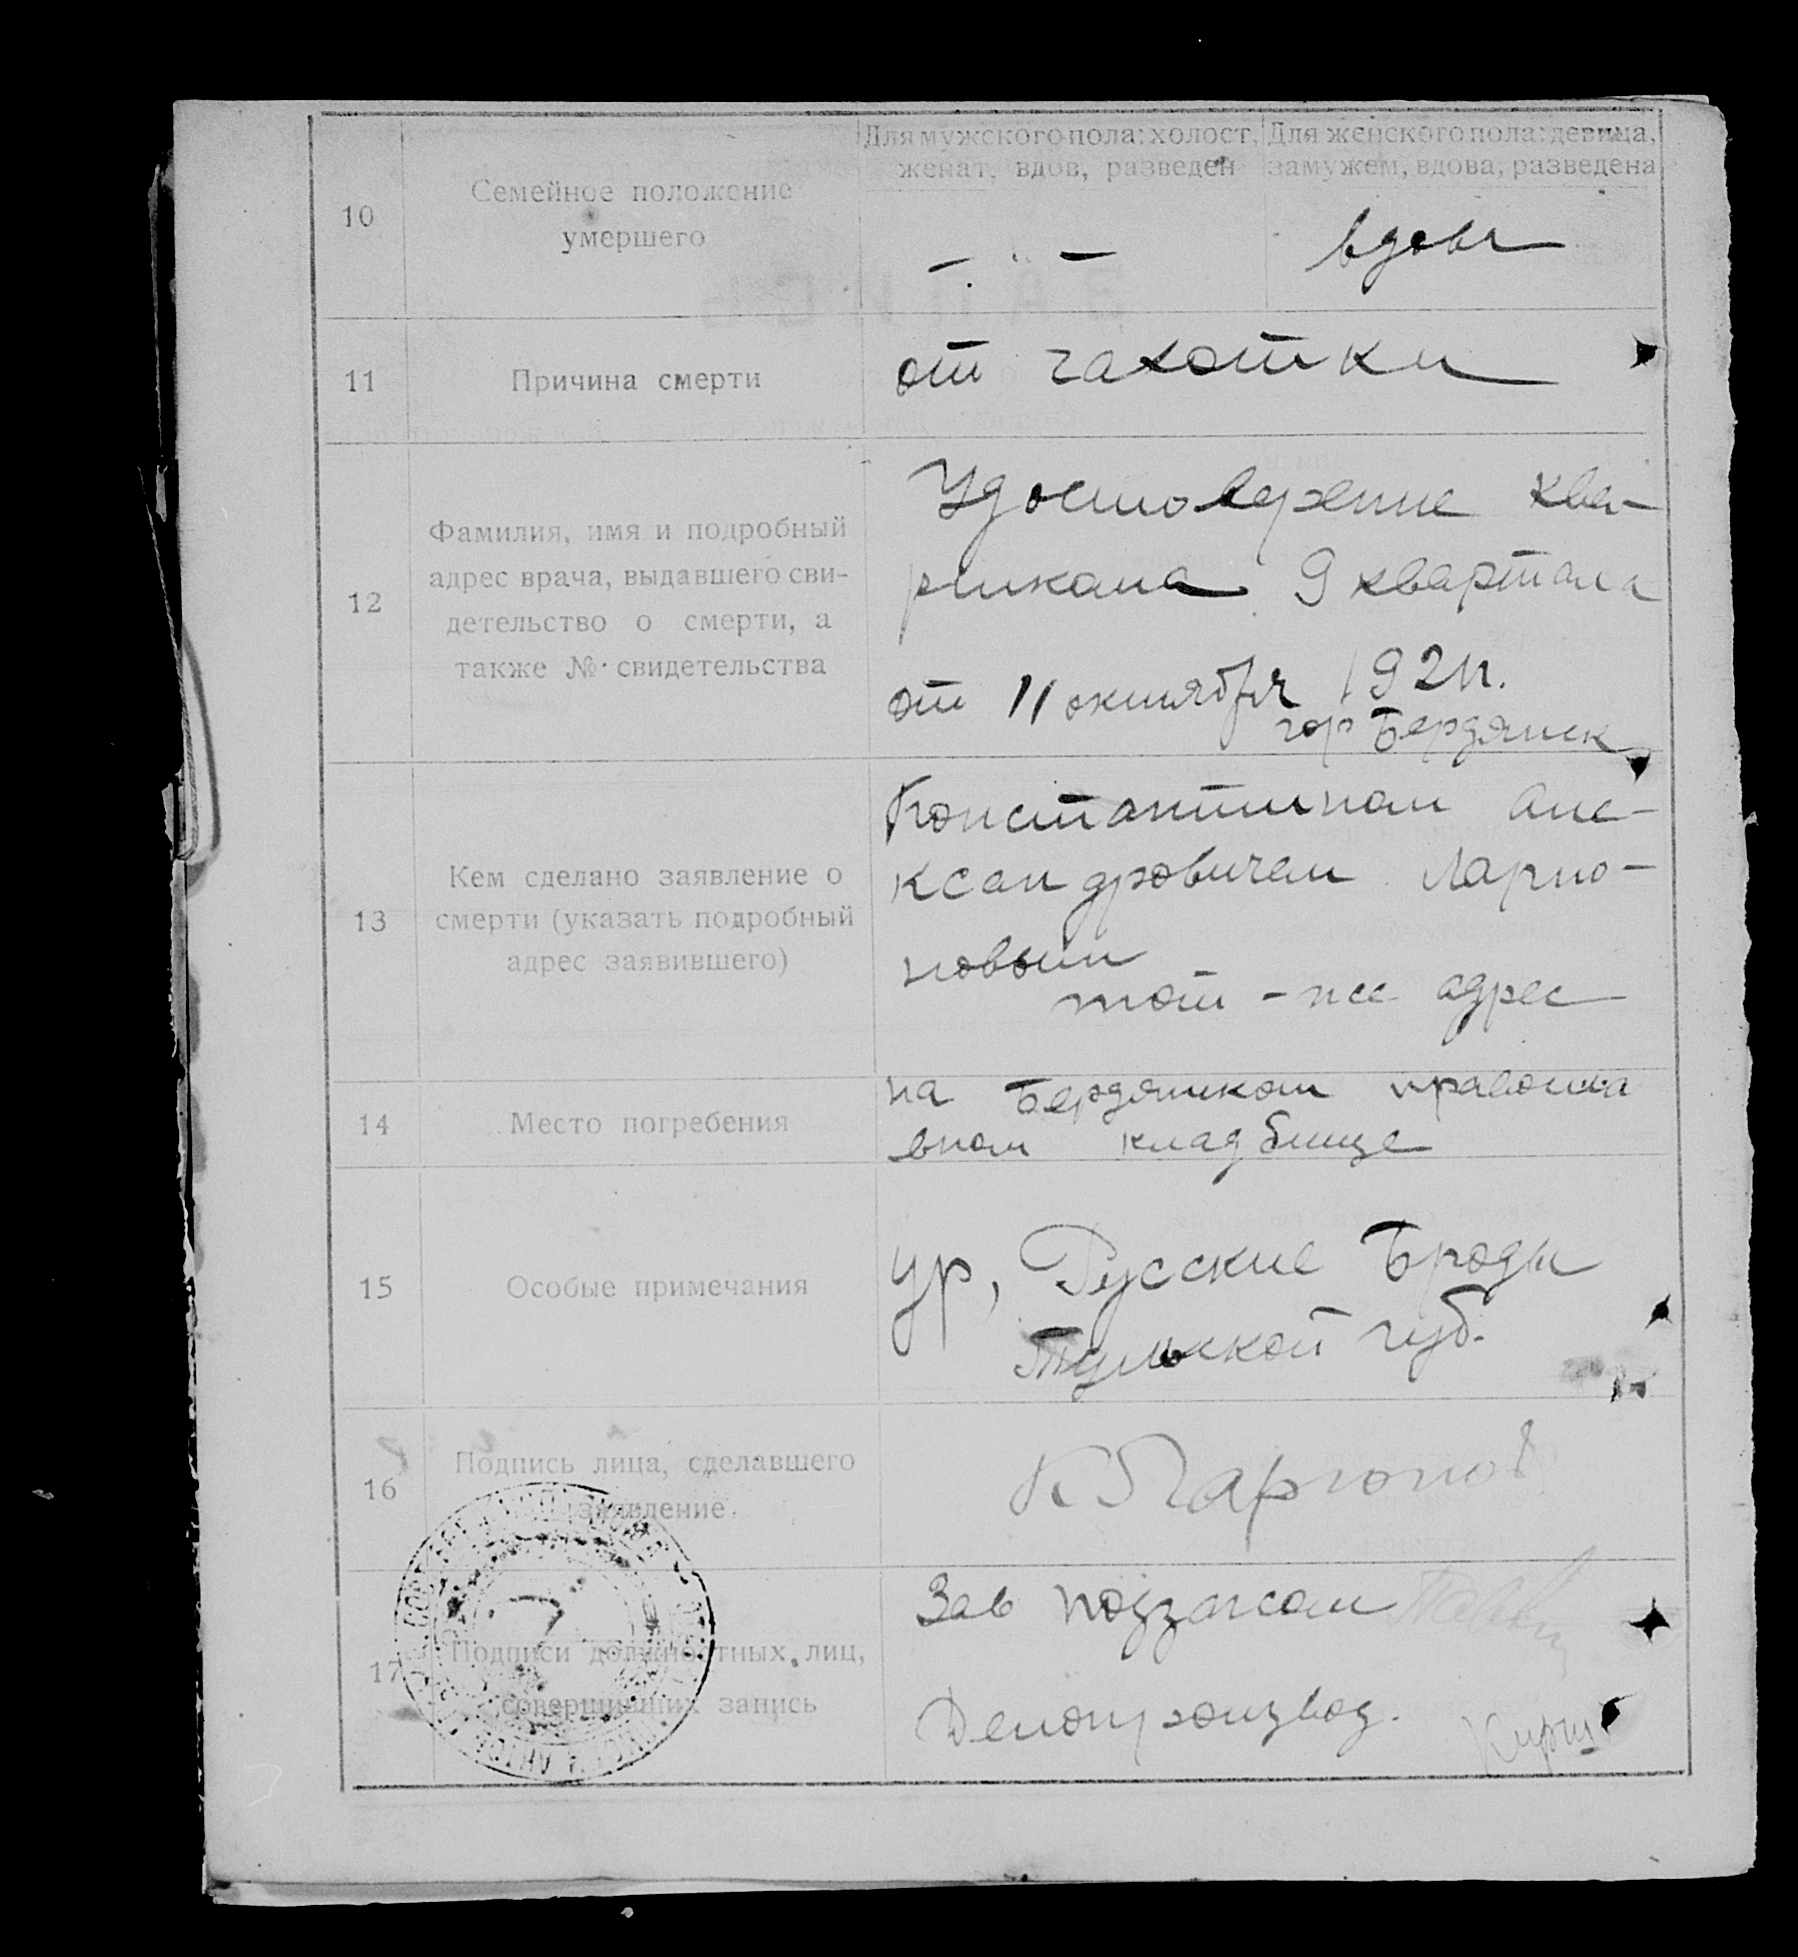 Для мужского пола: холост, женат, вдов, разведен
Для женского пола: девица, замужем, вдова, разведена
10
Семейное положение
умершего
— " —
вдова
11
Причина смерти
от чахотки
12
Фамилия, имя и подробный
адрес врача, выдавшего сви-
детельство о смерти, а
также № свидетельства
Удостоверение ква-
9 квартала
от 11 октября 1921г.
гор Бердянск
13
Кем сделано заявление о
смерти (указать подробный
адрес заявившего)
Константином Але-
ксандровичем Ларио-
новым
тот-же адрес
14
Место погребения
на Бердянском правосла
вном кладбище
15
Особые примечания
ур, Русские Броды
Тульской губ.
16
Подпись лица, сделавшего
заявление
К Ларионов
17
Подписи должностных лиц,
совершивших запись
Зав подзагсом
Делопроизвод.